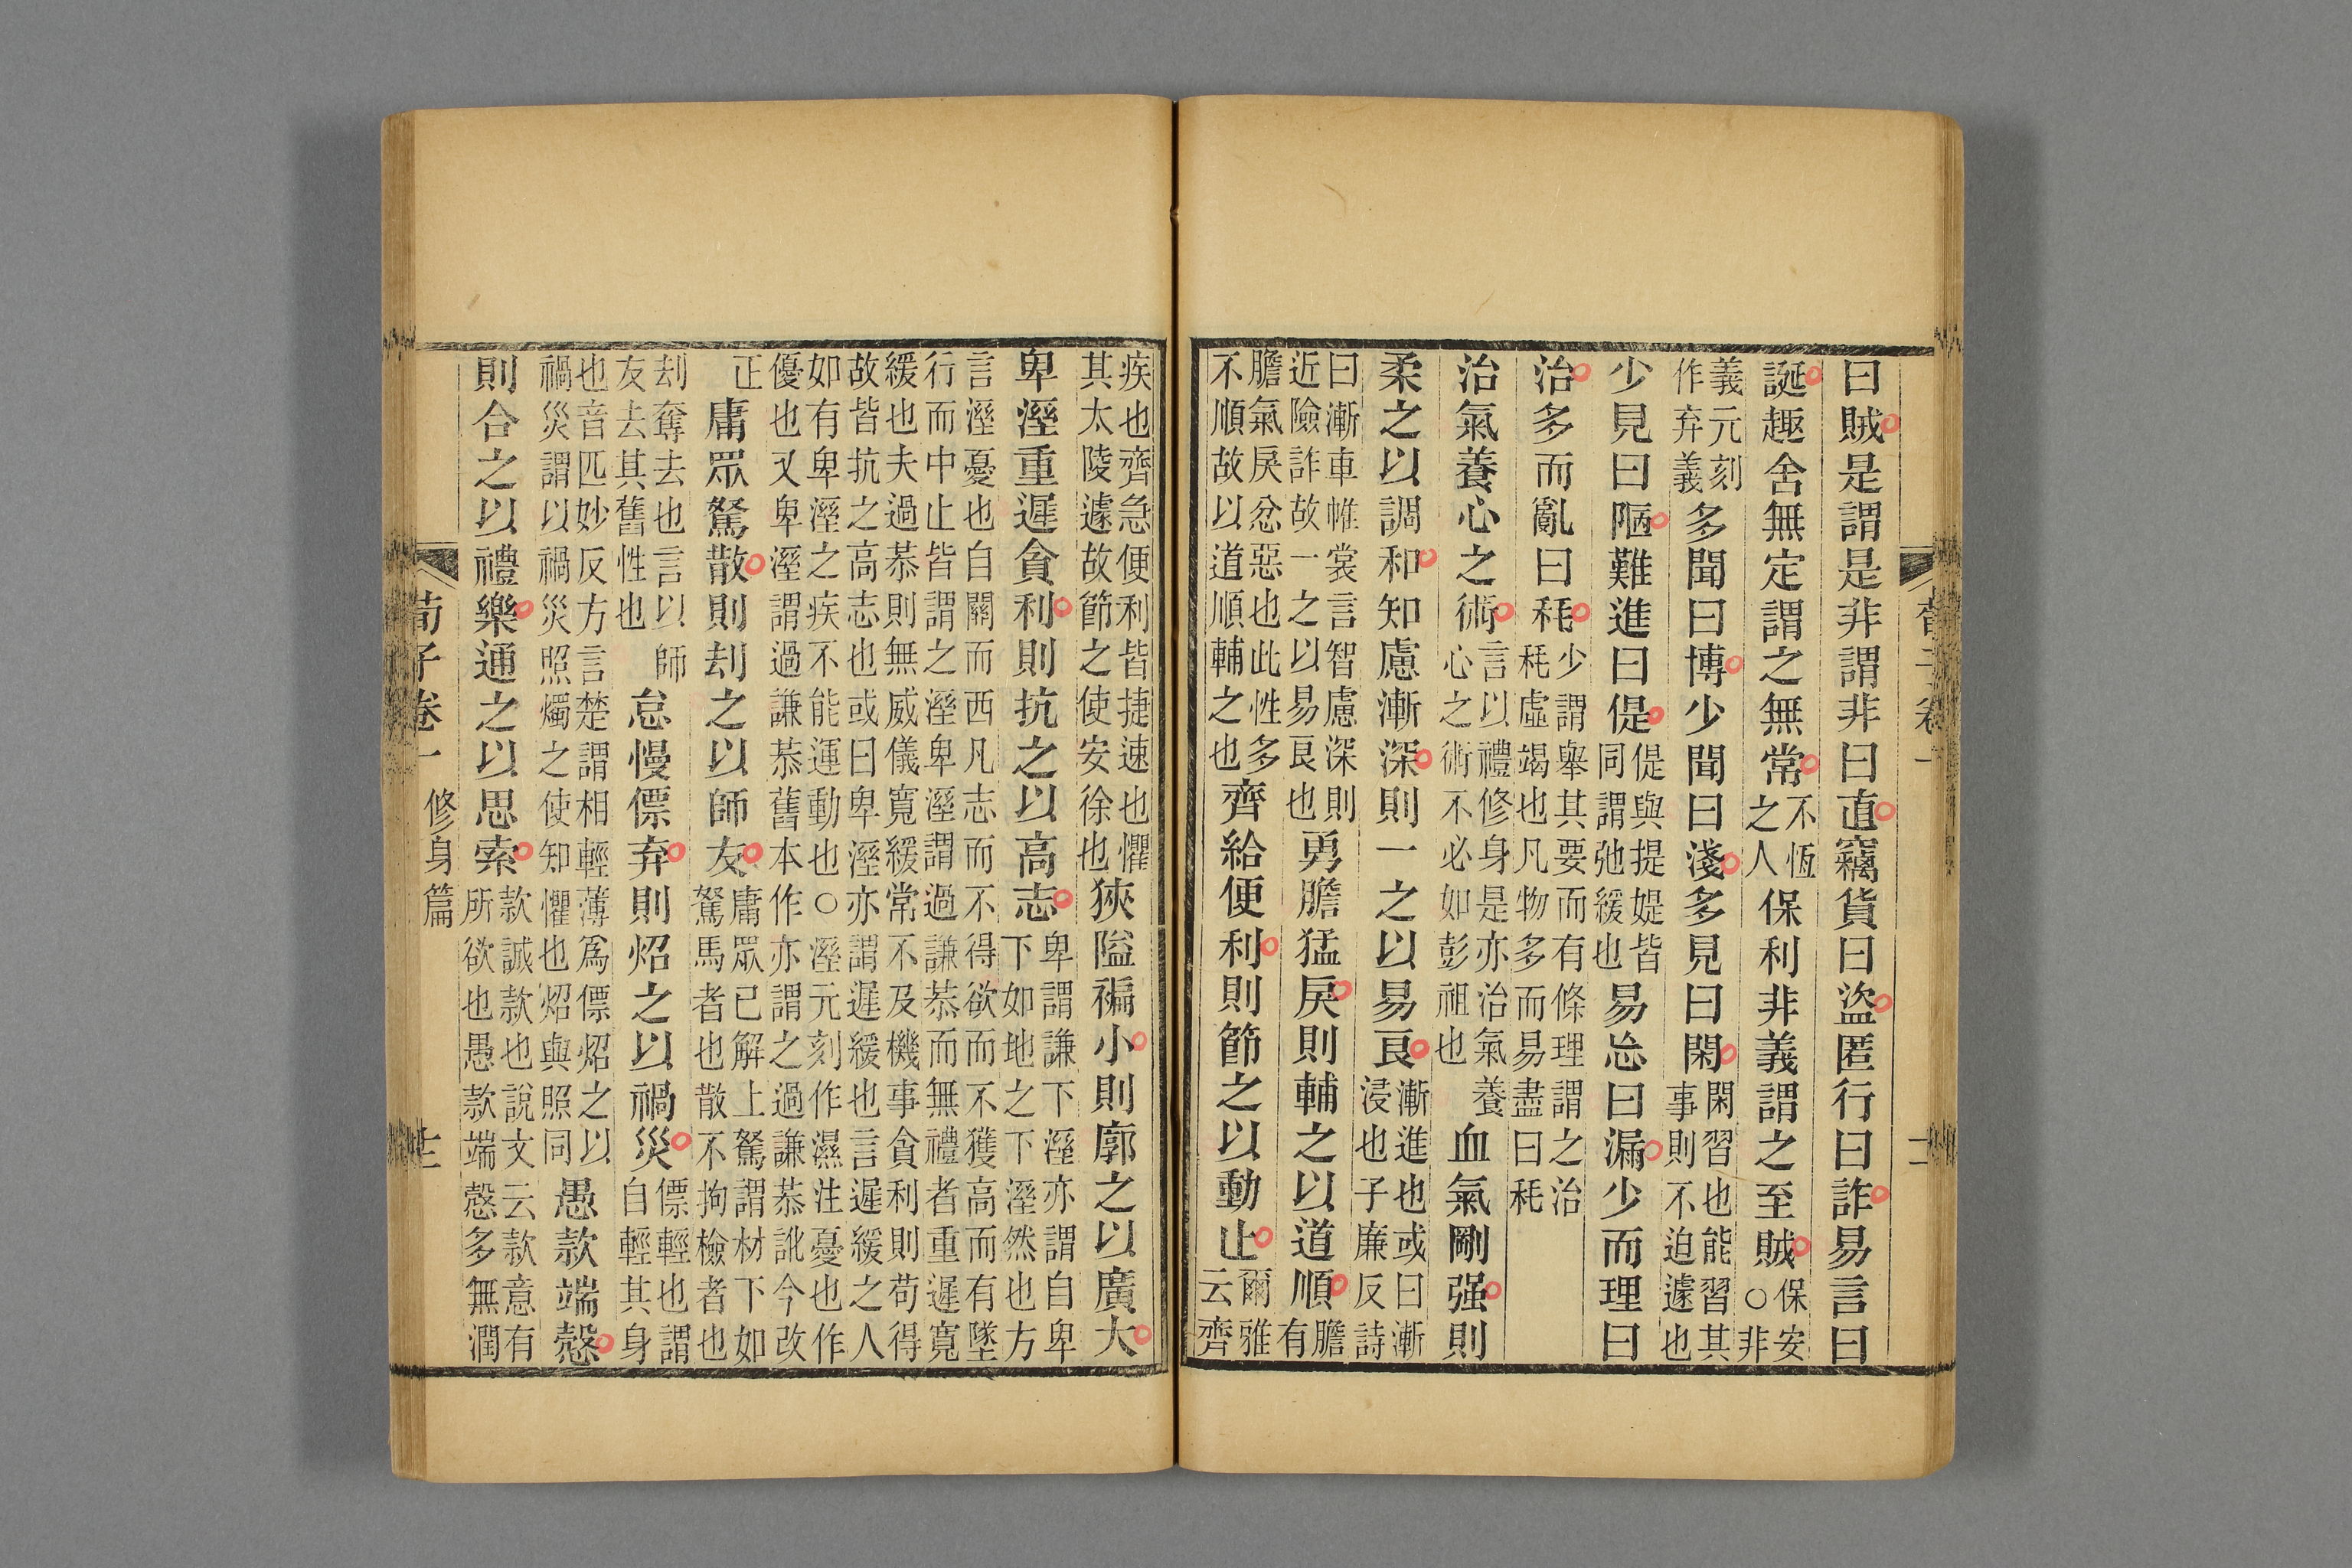 曰賊是謂是非謂非曰直竊貨曰盜匿行曰詐易言曰
誕趣舍無定謂之無常不恆之人保利非義謂之至賊保安○非
義元刻作弃義多聞曰博少聞曰淺多見曰閑閑習也能習其事則不迫遽也
少見曰陋難進曰偍偍與提媞皆同謂弛緩也易忘曰漏少而理曰
治多而亂曰秏少謂舉其要而有條理謂之治秏虛竭也凡物多而易盡曰秏
治氣養心之術言以禮修身是亦治氣養心之術不必如彭祖也血氣剛强則
柔之以調和知慮漸深則一之以易良漸進也或曰漸浸也子廉反詩
曰漸車帷裳言智慮深則近險詐故一之以易良也勇膽猛戾則輔之以道順膽有
膽氣戾忿惡也此性多不順故以道順輔之也齊給便利則節之以動止爾雅云齊
疾也齊急便利皆捷速也懼其太陵遽故節之使安徐也狹隘褊小則廓之以廣大
卑溼重遲貪利則抗之以高志卑謂謙下溼亦謂自卑下如地之下溼然也方
言溼憂也自關而西凡志而不得欲而不獲高而有墜行而中止皆謂之溼卑溼謂過謙恭而無禮者重遲寬
緩也夫過恭則無威儀寬緩常不及機事貪利則苟得故皆抗之高志也或曰卑溼亦謂遲緩也言遲緩之人
如有卑溼之疾不能運動也○溼元刻作濕注憂也作優也又卑溼謂過謙恭舊本作亦謂之過謙恭訛今改
正庸眾駑散則刦之以師友庸眾已解上駑謂材下如駑馬者也散不拘檢者也
刦奪去也言以師友去其舊性也怠慢僄弃則炤之以禍災僄輕也謂自輕其身
也音匹妙反方言楚謂相輕薄爲僄炤之以禍災謂以禍災照燭之使知懼也炤與照同愚款端愨
則合之以禮樂通之以思索款誠款也說文云款意有所欲也愚款端愨多無潤
荀子卷一 修身篇